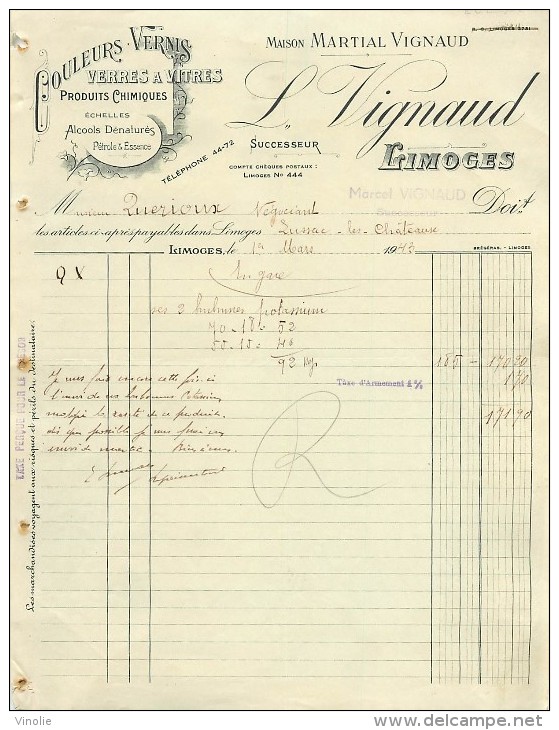 R. C. LIMOGES
COULEURS · VERNIS
VERRES A VITRES
PRODUITS CHIMIQUES
ÉCHELLES
Alcools Dénaturés
Pétrole & Essence
TÉLÉPHONE 44-72
MAISON MARTIAL VIGNAUD
L. Vignaud
SUCCESSEUR
LIMOGES
COMPTE CHÈQUES POSTAUX :
LIMOGES No 444
Marcel VIGNAUD
Successeur
Monsieur Querioux Négociant Doit
les articles ci-après payables dans Limoges Lussac-les-Châteaux
LIMOGES, le 1er Mars 1943
BRÉGÉRAS. - LIMOGES
En gare
ses 2 potassium
70 - 18 = 52
= 46
92 Kg. 185 - 17020
Taxe d'Armement 1% 170
17190
Je vous fais encore cette fois ci
l'envoi de
malgré la rareté de ce produit
dès que possible je vous
R
TAXE PERÇUE POUR LE
Les marchandises voyagent aux risques et périls du destinataire.
Vinolie
delcampe.net